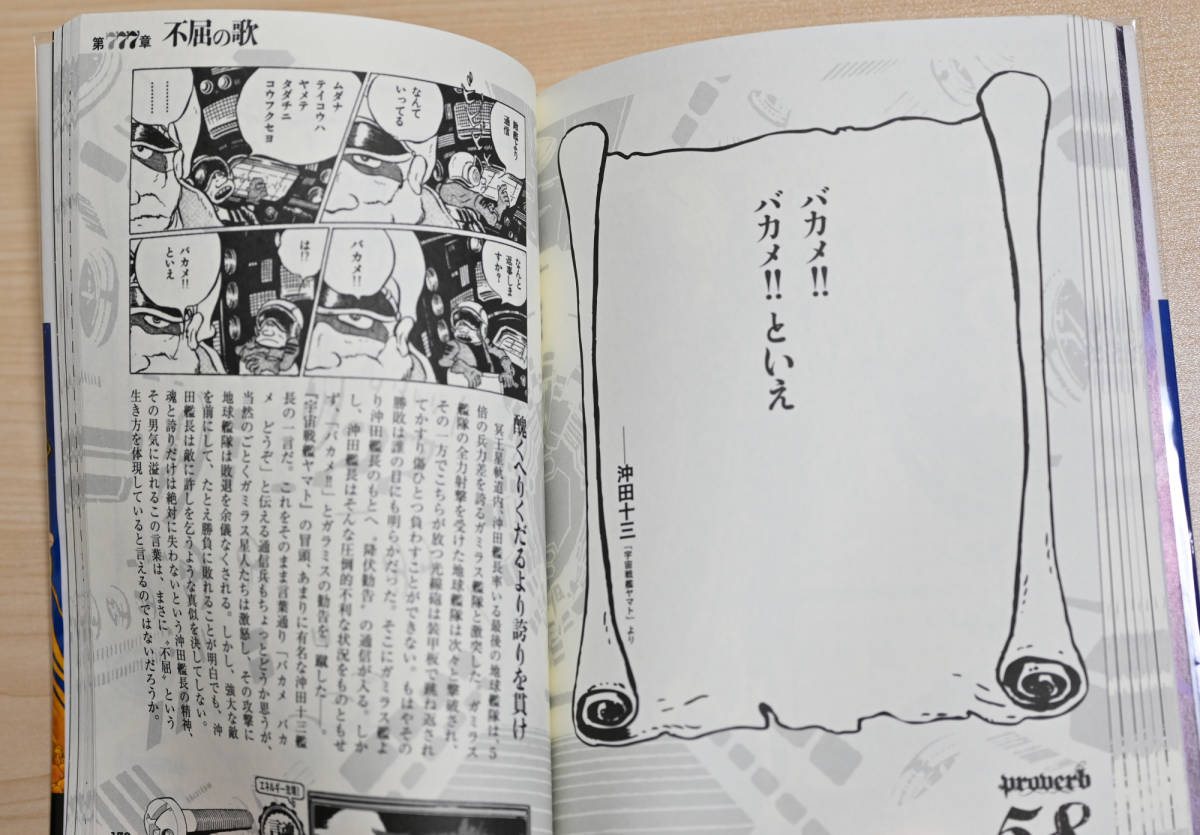 第777章 不屈の歌
敵艦より
通信
なんて
いってる
ムダナ
テイコウハ
ヤメテ
タダチニ
コウフクセヨ
………
………
なんと
返事しま
すか?
バカメ!!
は!?
バカメ!!
といえ
醜くへりくだるより誇りを貫け
冥王星軌道内、沖田艦長率いる最後の地球艦隊は、5
倍の兵力差を誇るガミラス艦隊と激突した。ガミラス
艦隊の全力射撃を受けた地球艦隊は次々と撃破され、
その一方でこちらが放つ光線砲は装甲板で跳ね返され
てかすり傷ひとつ負わすことができない。もはやその
勝敗は誰の目にも明らかだった。そこにガミラス艦よ
り沖田艦長のもとへ〝降伏勧告〟の通信が入る。しか
し、沖田艦長はそんな圧倒的不利な状況をものともせ
ず、「バカメ!!」とガミラスの勧告を一蹴した――。
『宇宙戦艦ヤマト』の冒頭、あまりに有名な沖田十三艦
長の一言だ。これをそのまま言葉通り「バカメ バカ
メ どうぞ」と伝える通信兵もちょっとどうか思うが、
当然のごとくガミラス星人たちは激怒し、その攻撃に
地球艦隊は敗退を余儀なくされる。しかし、強大な敵
を前にして、たとえ勝負に敗れることが明白でも、沖
田艦長は敵に許しを乞うような真似を決してしない。
魂と誇りだけは絶対に失わないという沖田艦長の精神、
その男気に溢れるこの言葉は、まさに〝不屈〟という
生き方を体現していると言えるのではないだろうか。
エネルギー充填!!
バカメ!!
バカメ!! といえ
――沖田十三『宇宙戦艦ヤマト』より
proverb
58